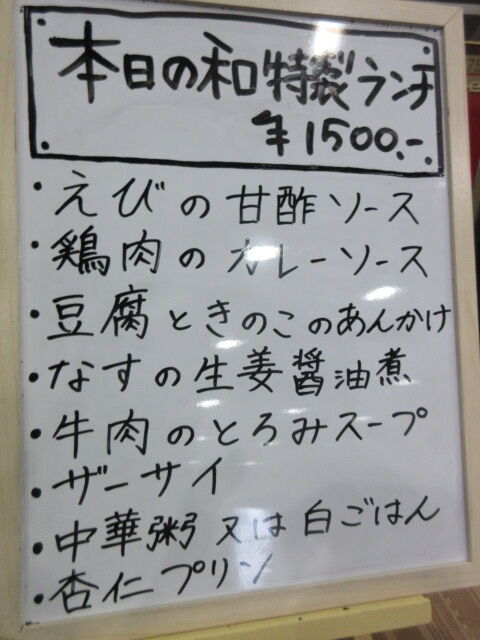 本日の和特製ランチ
¥1500.-
・えびの甘酢ソース
・鶏肉のカレーソース
・豆腐ときのこのあんかけ
・なすの生姜醤油煮
・牛肉のとろみスープ
・ザーサイ
・中華粥又は白ごはん
・杏仁プリン